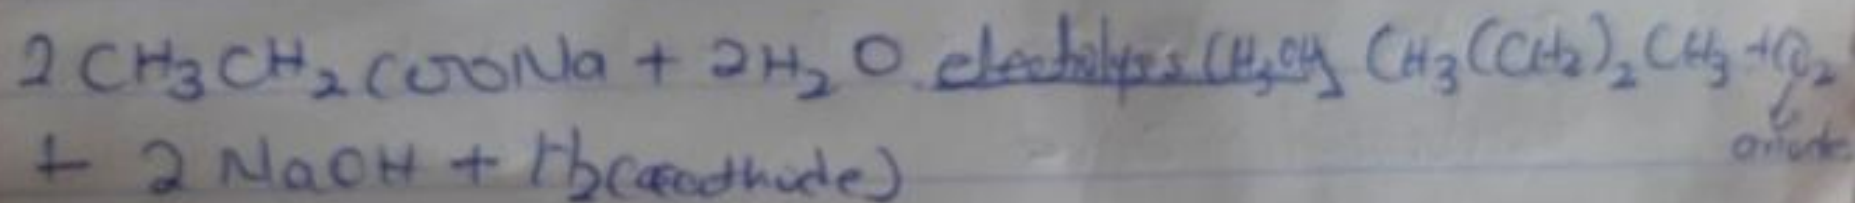 2CH₃CH₂COONa + 2H₂O electrolysis CH₃OH CH₃(CH₂)₂CH₃ + CO₂ anode
+ 2NaOH + H₂(caathode)